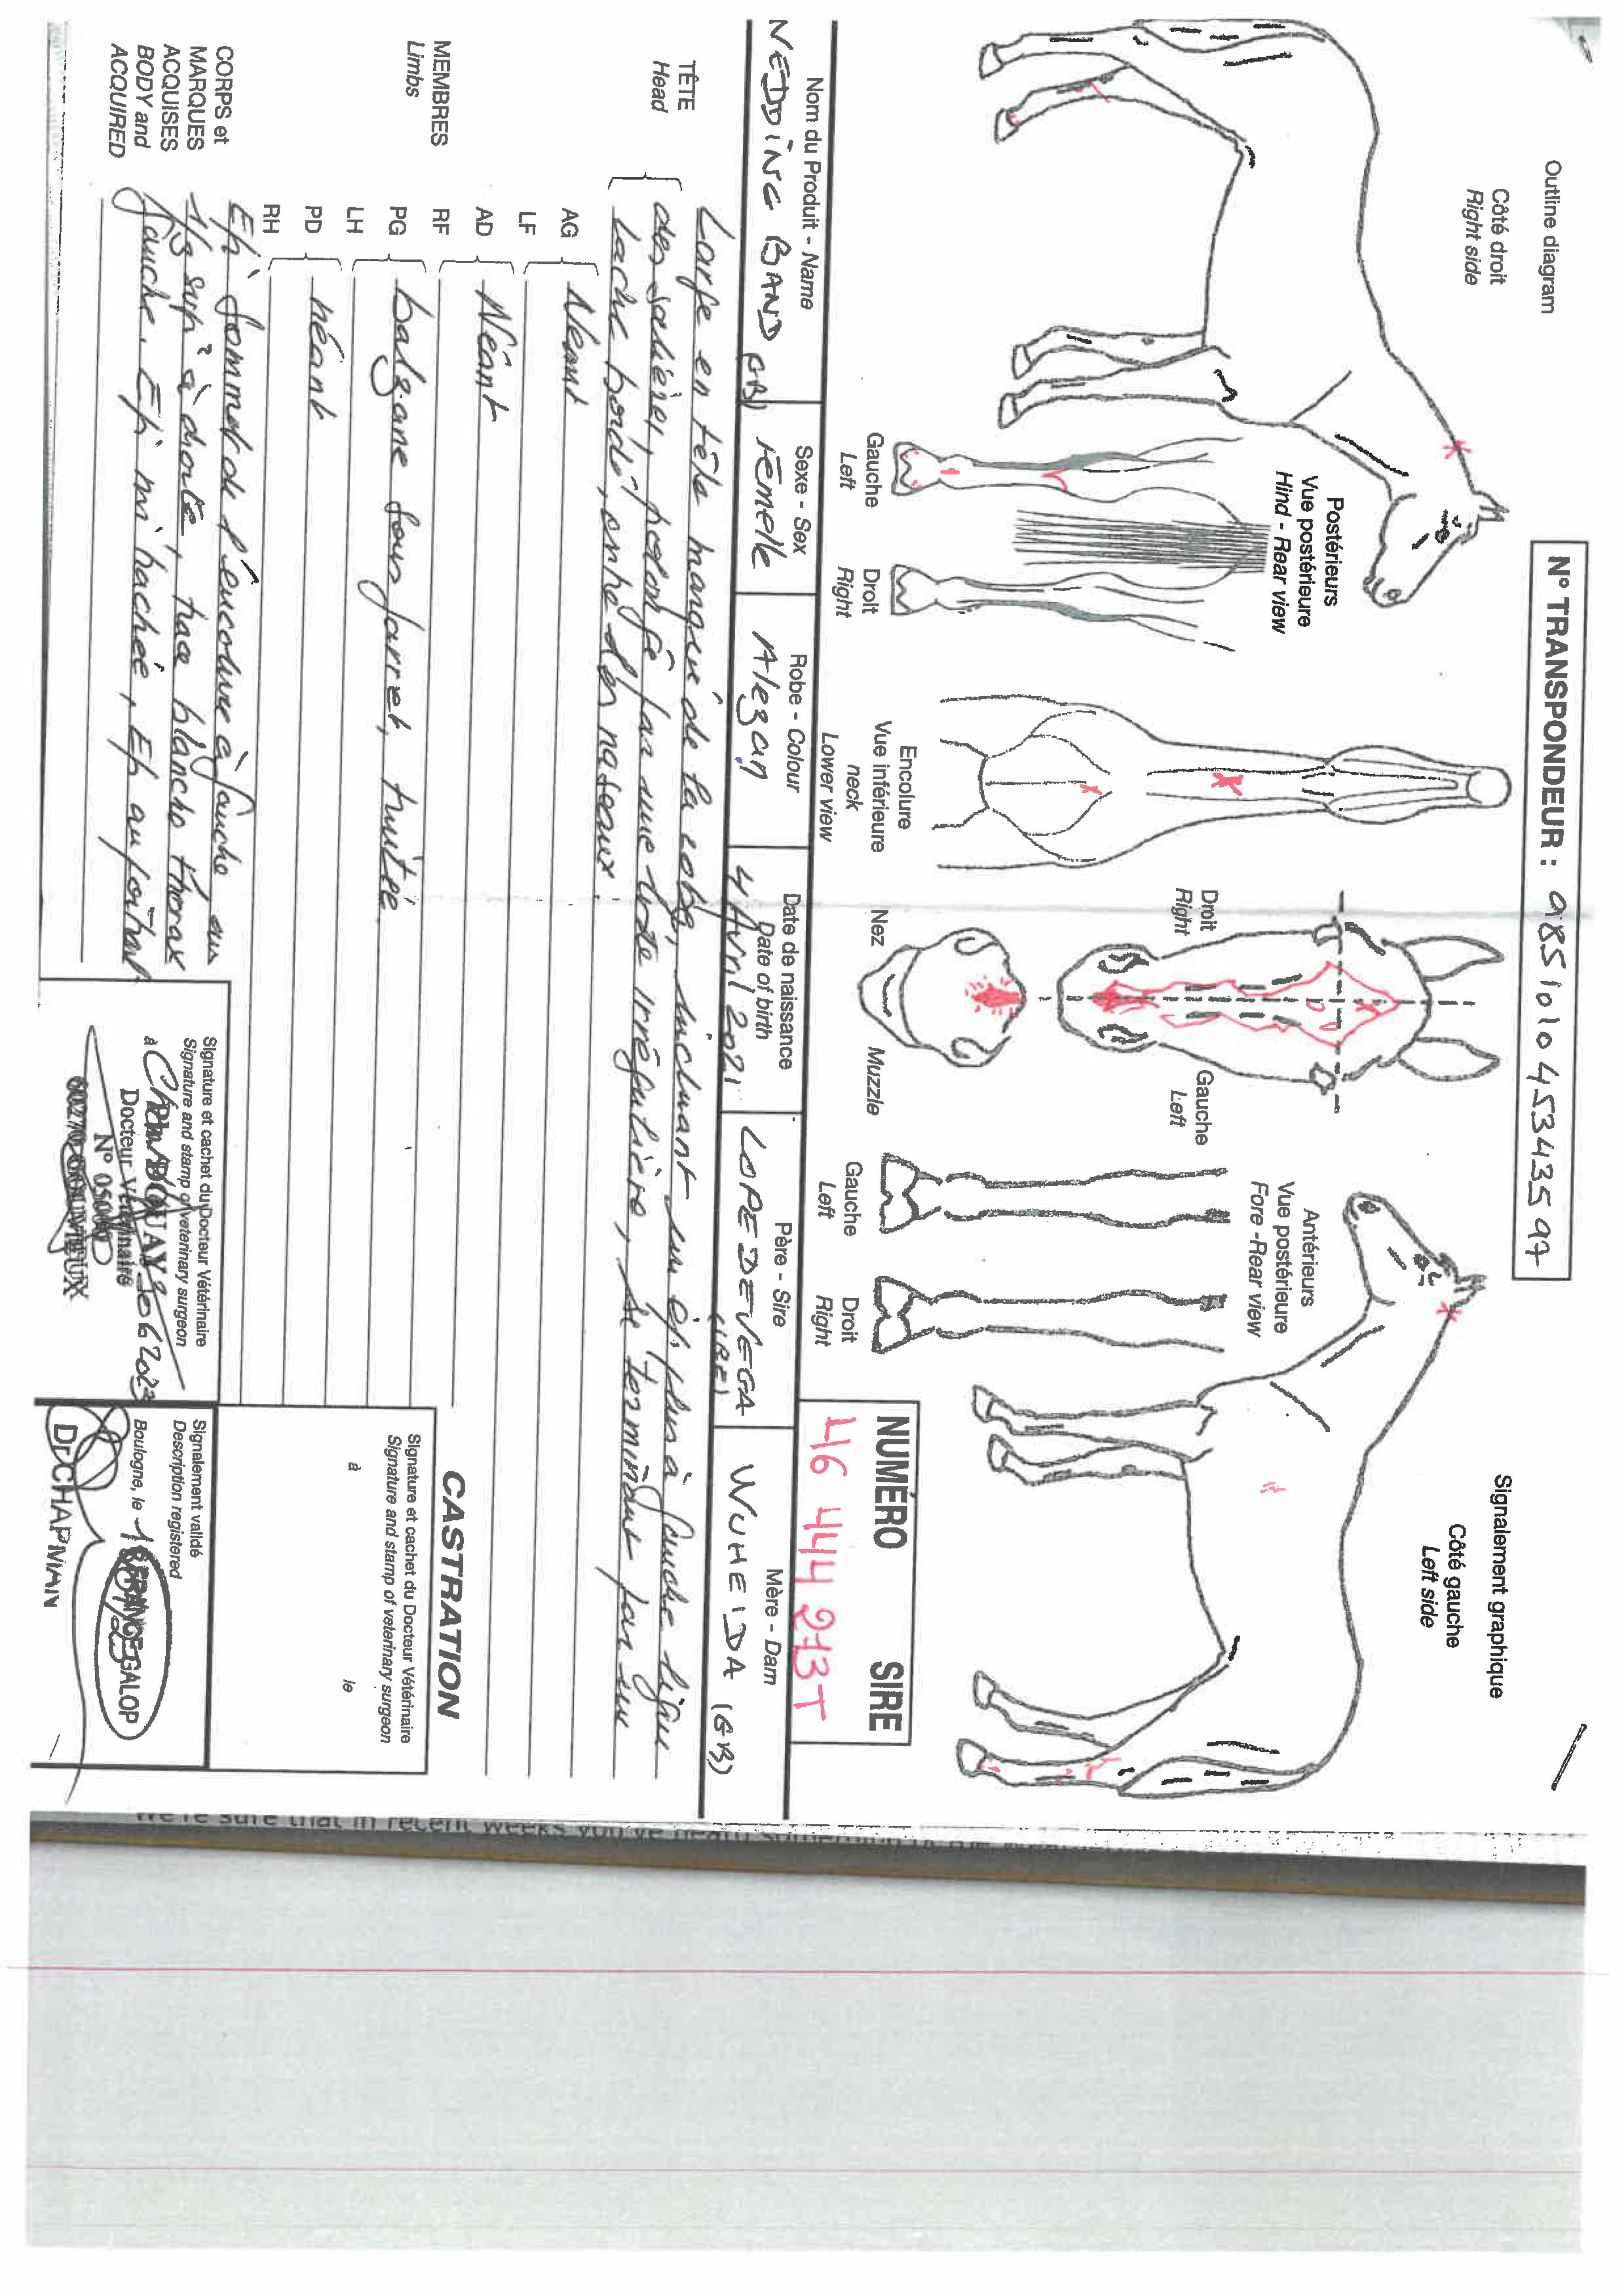 Outline diagram
Côté droit
Right side
N° TRANSPONDEUR : 985101045343597
Signalement graphique
Côté gauche
Left side
Postérieurs
Vue postérieure
Hind - Rear view
Gauche
Left
Droit
Right
Encolure
Vue inférieure
neck
Lower view
Droit
Right
Gauche
Left
Nez
Muzzle
Antérieurs
Vue postérieure
Fore -Rear view
Gauche
Left
Droit
Right
NUMÉRO SIRE
16 444 273T
Nom du Produit - Name
WEDDING BAND (GB)
Sexe - Sex
Femelle
Robe - Colour
Alezan
Date de naissance
Date of birth
4 Avril 2021
Père - Sire
LOPE DE VEGA
(IRE)
Mère - Dam
WUHEIDA (GB)
TÊTE
Head
Large en tête marqué de la robe, incluant un épi plus à gauche ligne
des salières, prolongée par une liste irrégulière, se terminant par un
ladre bordé, entre les naseaux.
MEMBRES
Limbs
AG
LF
Néant
AD
RF
Néant
PG
LH
balzane sous jarret, truitée.
PD
RH
néant
CORPS et
MARQUES
ACQUISES
BODY and
ACQUIRED
Epi sommet de l'encolure à gauche au
1/3 supr à droite, trace blanche thorax
gauche. Epi mi trachée, Ep au poitrail
Signature et cachet du Docteur Vétérinaire
Signature and stamp of veterinary surgeon
à
Docteur Vétérinaire
N° 05000
60270 GOUVIEUX
CASTRATION
Signature et cachet du Docteur Vétérinaire
Signature and stamp of veterinary surgeon
à le
Signalement validé
Description registered
Boulogne, le
FRANCE GALOP
Dr CHAPMAN
We're sure that in recent weeks you've heard